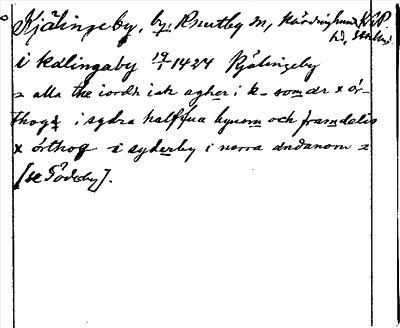 Kjälingeby, by. Knutby sn, Närdinghund.
hd, Sthlms
i kælingaby 19/1 1424 Kjälingeby
= alla the iordh iak agher i k- som ær x ör-
thogx i sydra halffua bynom och framdelis
x örthog i syderby i norra ændanom =
[se Gödeby].